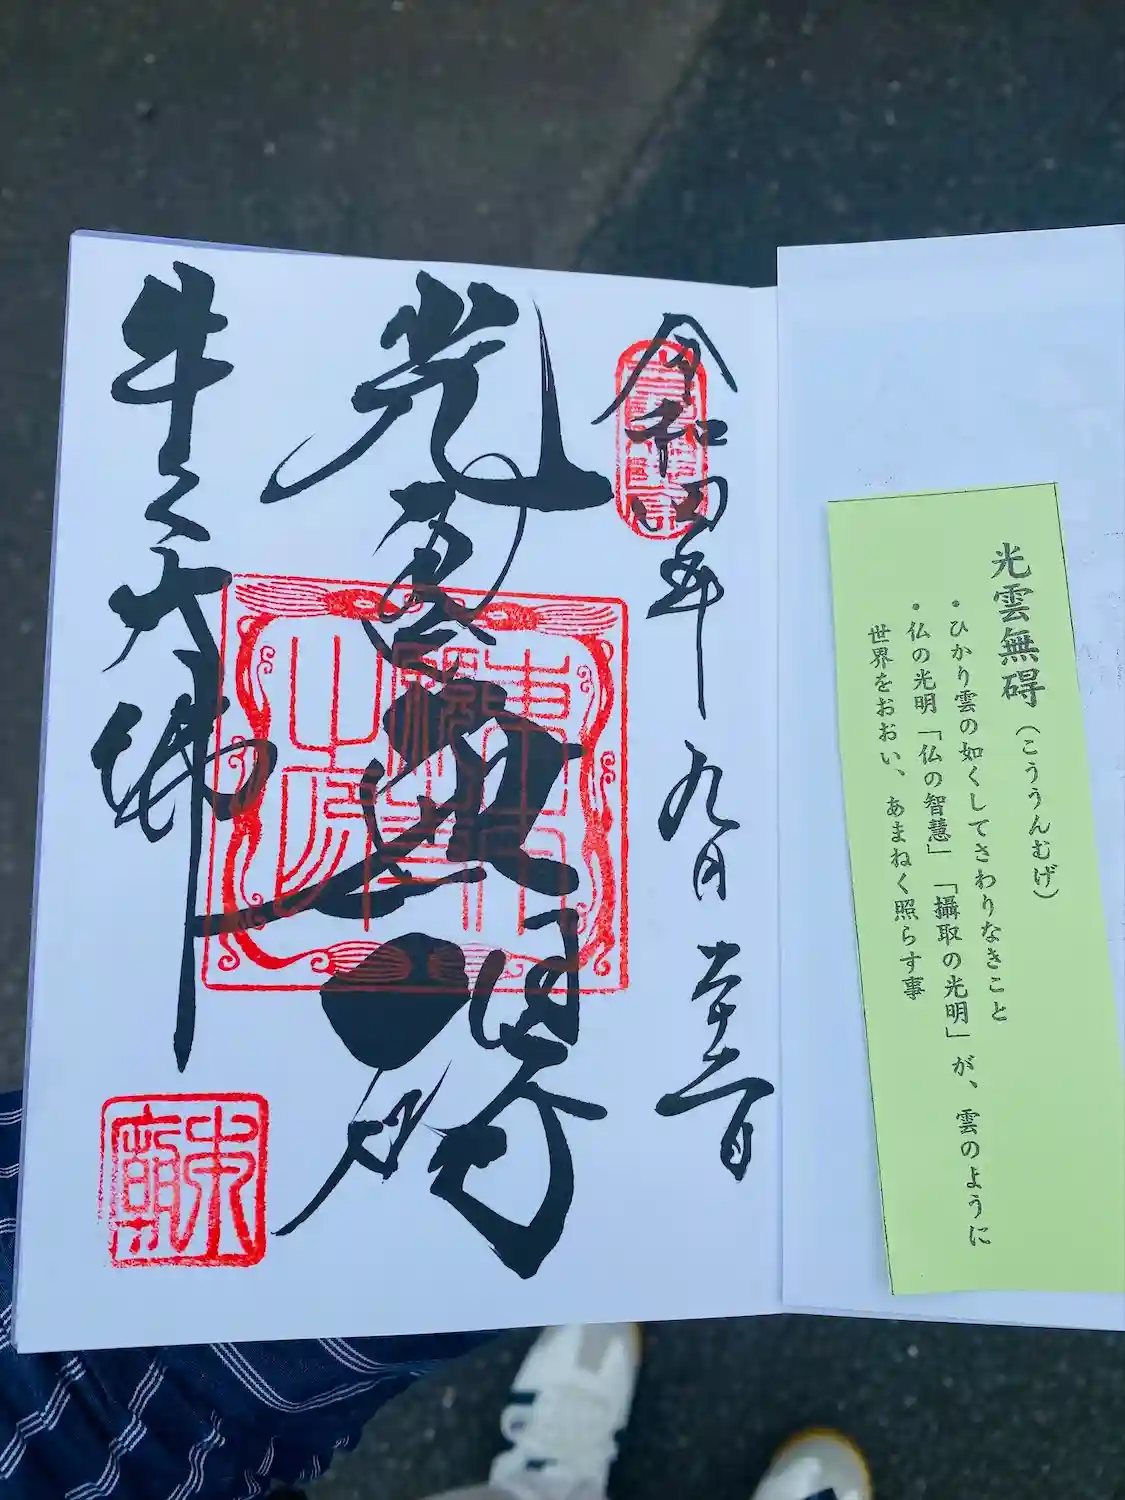 光雲無碍(こううんむげ)
・ひかり雲の如くしてさわりなきこと
・仏の光明「仏の智慧」「攝取の光明」が、雲のように
世界をおおい、あまねく照らす事
令和四年九月
光雲無碍
牛久大佛